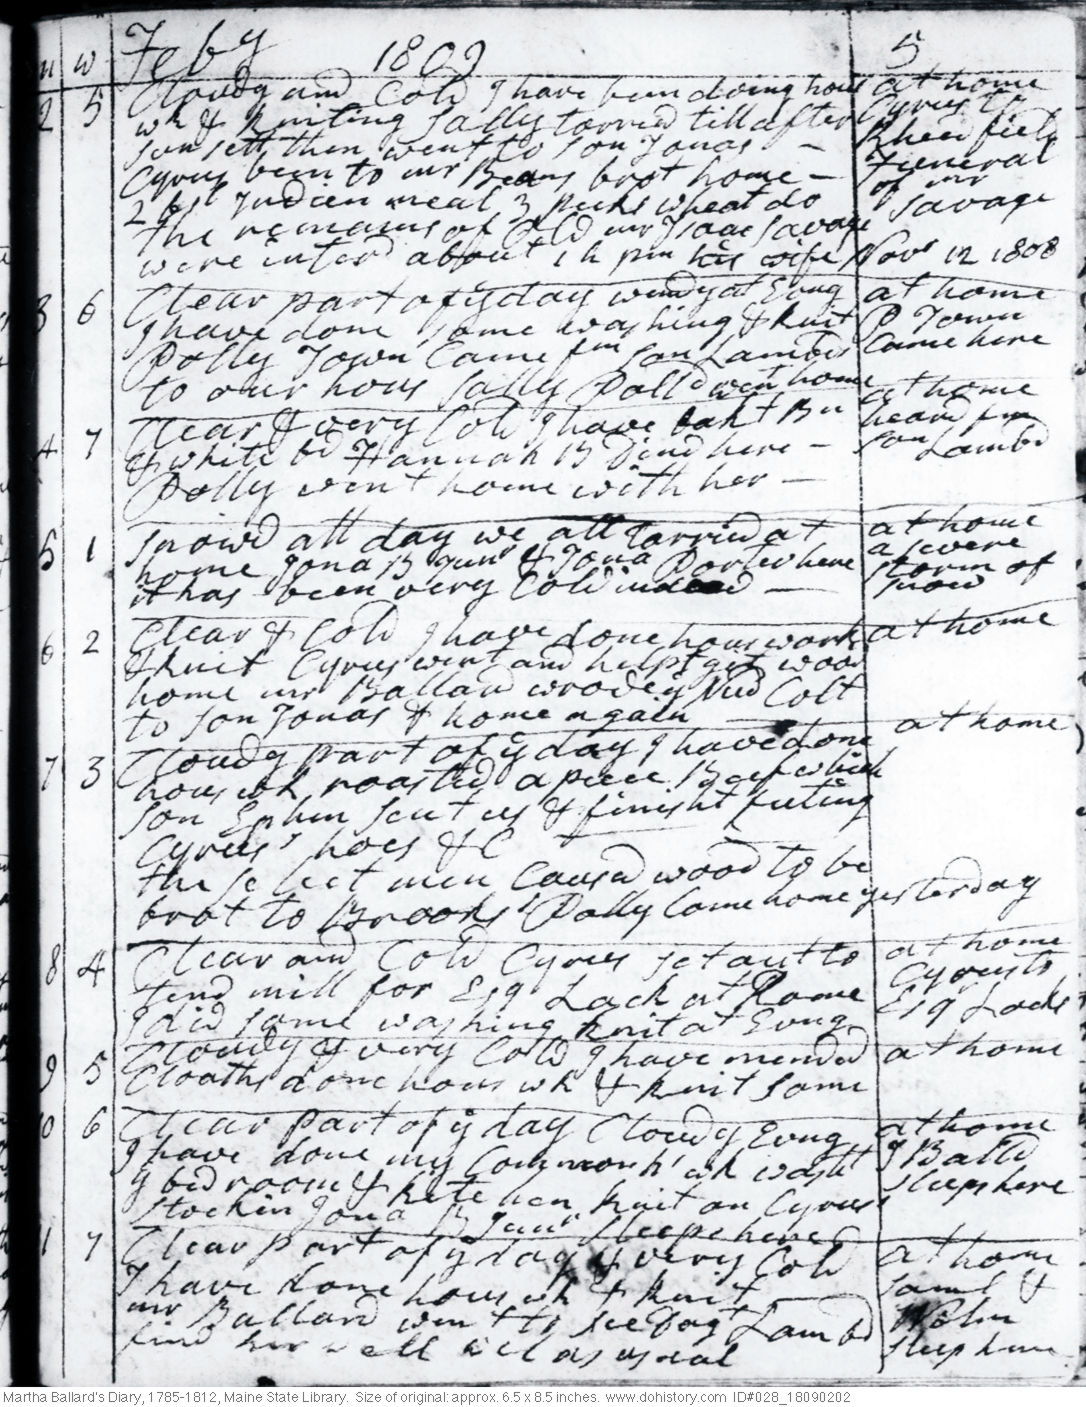 M W Feby 1809 5
2 5 Cloudy and Cold I have been doing hous at home
wk & Kniting Sally tarried till after Cyrus to
sun sett then went to son Jonas – Kheerfield
Cyrus been to mr Beans brot home – Funeral
2 bsl Indien meal 3 pecks wheat do of mr
the remains of Old mr Isaac Savage Savage
were interd about 1 h pm his wife Novr 12 1808
3 6 Clear part of ye day windy at Evng at home
I have done some washing & knit P Town
Polly Town Came fm son Lambds Came here
to our hous Sally Balld went home
4 7 Clear & very Cold I have bakt Bn at home
& white bd Hannah B Dind here – heard fm
Polly went home with her – son Lambd
5 1 Snowd all day we all tarried at at home
home Jona B Junr & Jona Porter here a severe
it has been very Cold indeed – storm of
snow
6 2 Clear & Cold I have done hous work at home
& knit Cyrus went and helpt get wood
home mr Ballard wrode ye Colt
to son Jonas & home again
7 3 Cloudy part of ye day I have done at home
hous wk roasted a piece Beef which
son Ephm sent us & finisht futing
Cyrus' hoes & C
the select men Causd wood to be
brot to Brooks' Polly Came home yesterday
8 4 Clear and Cold Cyrus set out to at home
tend mill for Esqr Lock at Rome Cyrus to
I did some washing knit at Evng Esqr Locks
9 5 Cloudy & very Cold I have mended at home
Cloaths done hous wk & knit some
10 6 Clear part of ye day Cloudy Evng at home
I have done my Common h' wk washt J Balld
ye bedroom & kitchen knit on Cyrus' sleeps here
stockin Jona B Junr sleeps here
11 7 Clear part of ye day & very Cold at home
I have done hous wk & knit Saml &
mr Ballard went to see Dagt Lambd Wm
find her well as usual sleep here
Martha Ballard's Diary, 1785-1812, Maine State Library. Size of original: approx. 6.5 x 8.5 inches. www.dohistory.com ID#028_18090202